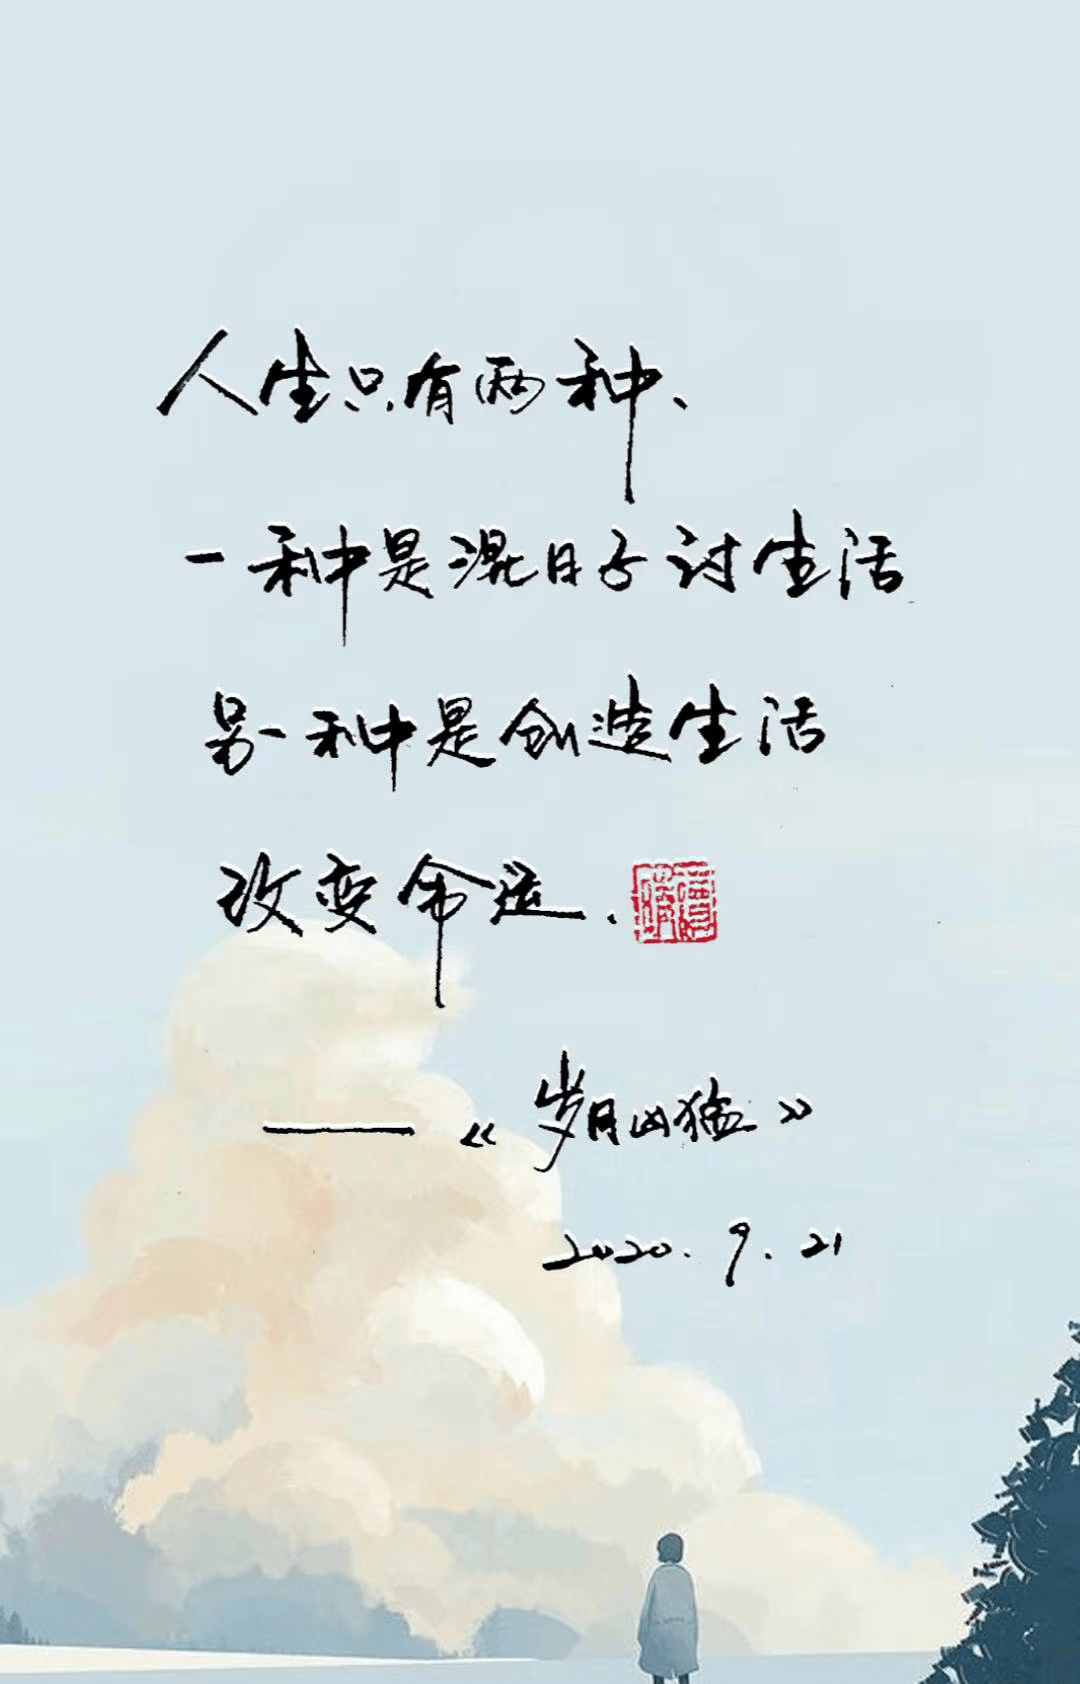 人生只有两种、
一种是混日子讨生活
另一种是创造生活
改变命运.
——《岁月凶猛》
2020.9.21